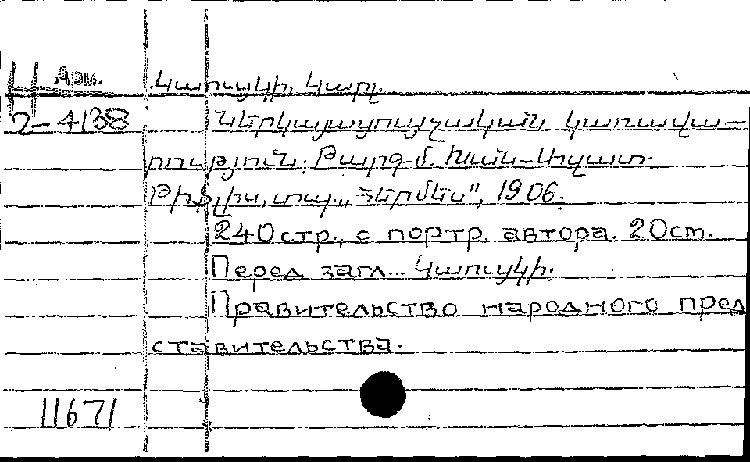 Арм. Կաուցկի, Կարլ.
2-4138 Ներկայացուցչական կառավա-
րություն. Թարգ. մ. Խան-Ազատ.
Թիֆլիս, տպ. „Հերմես", 1906.
240стр., с портр. автора. 20см.
Перед загл. Կաուցկի.
Правительство народного пред
ставительства.
11671